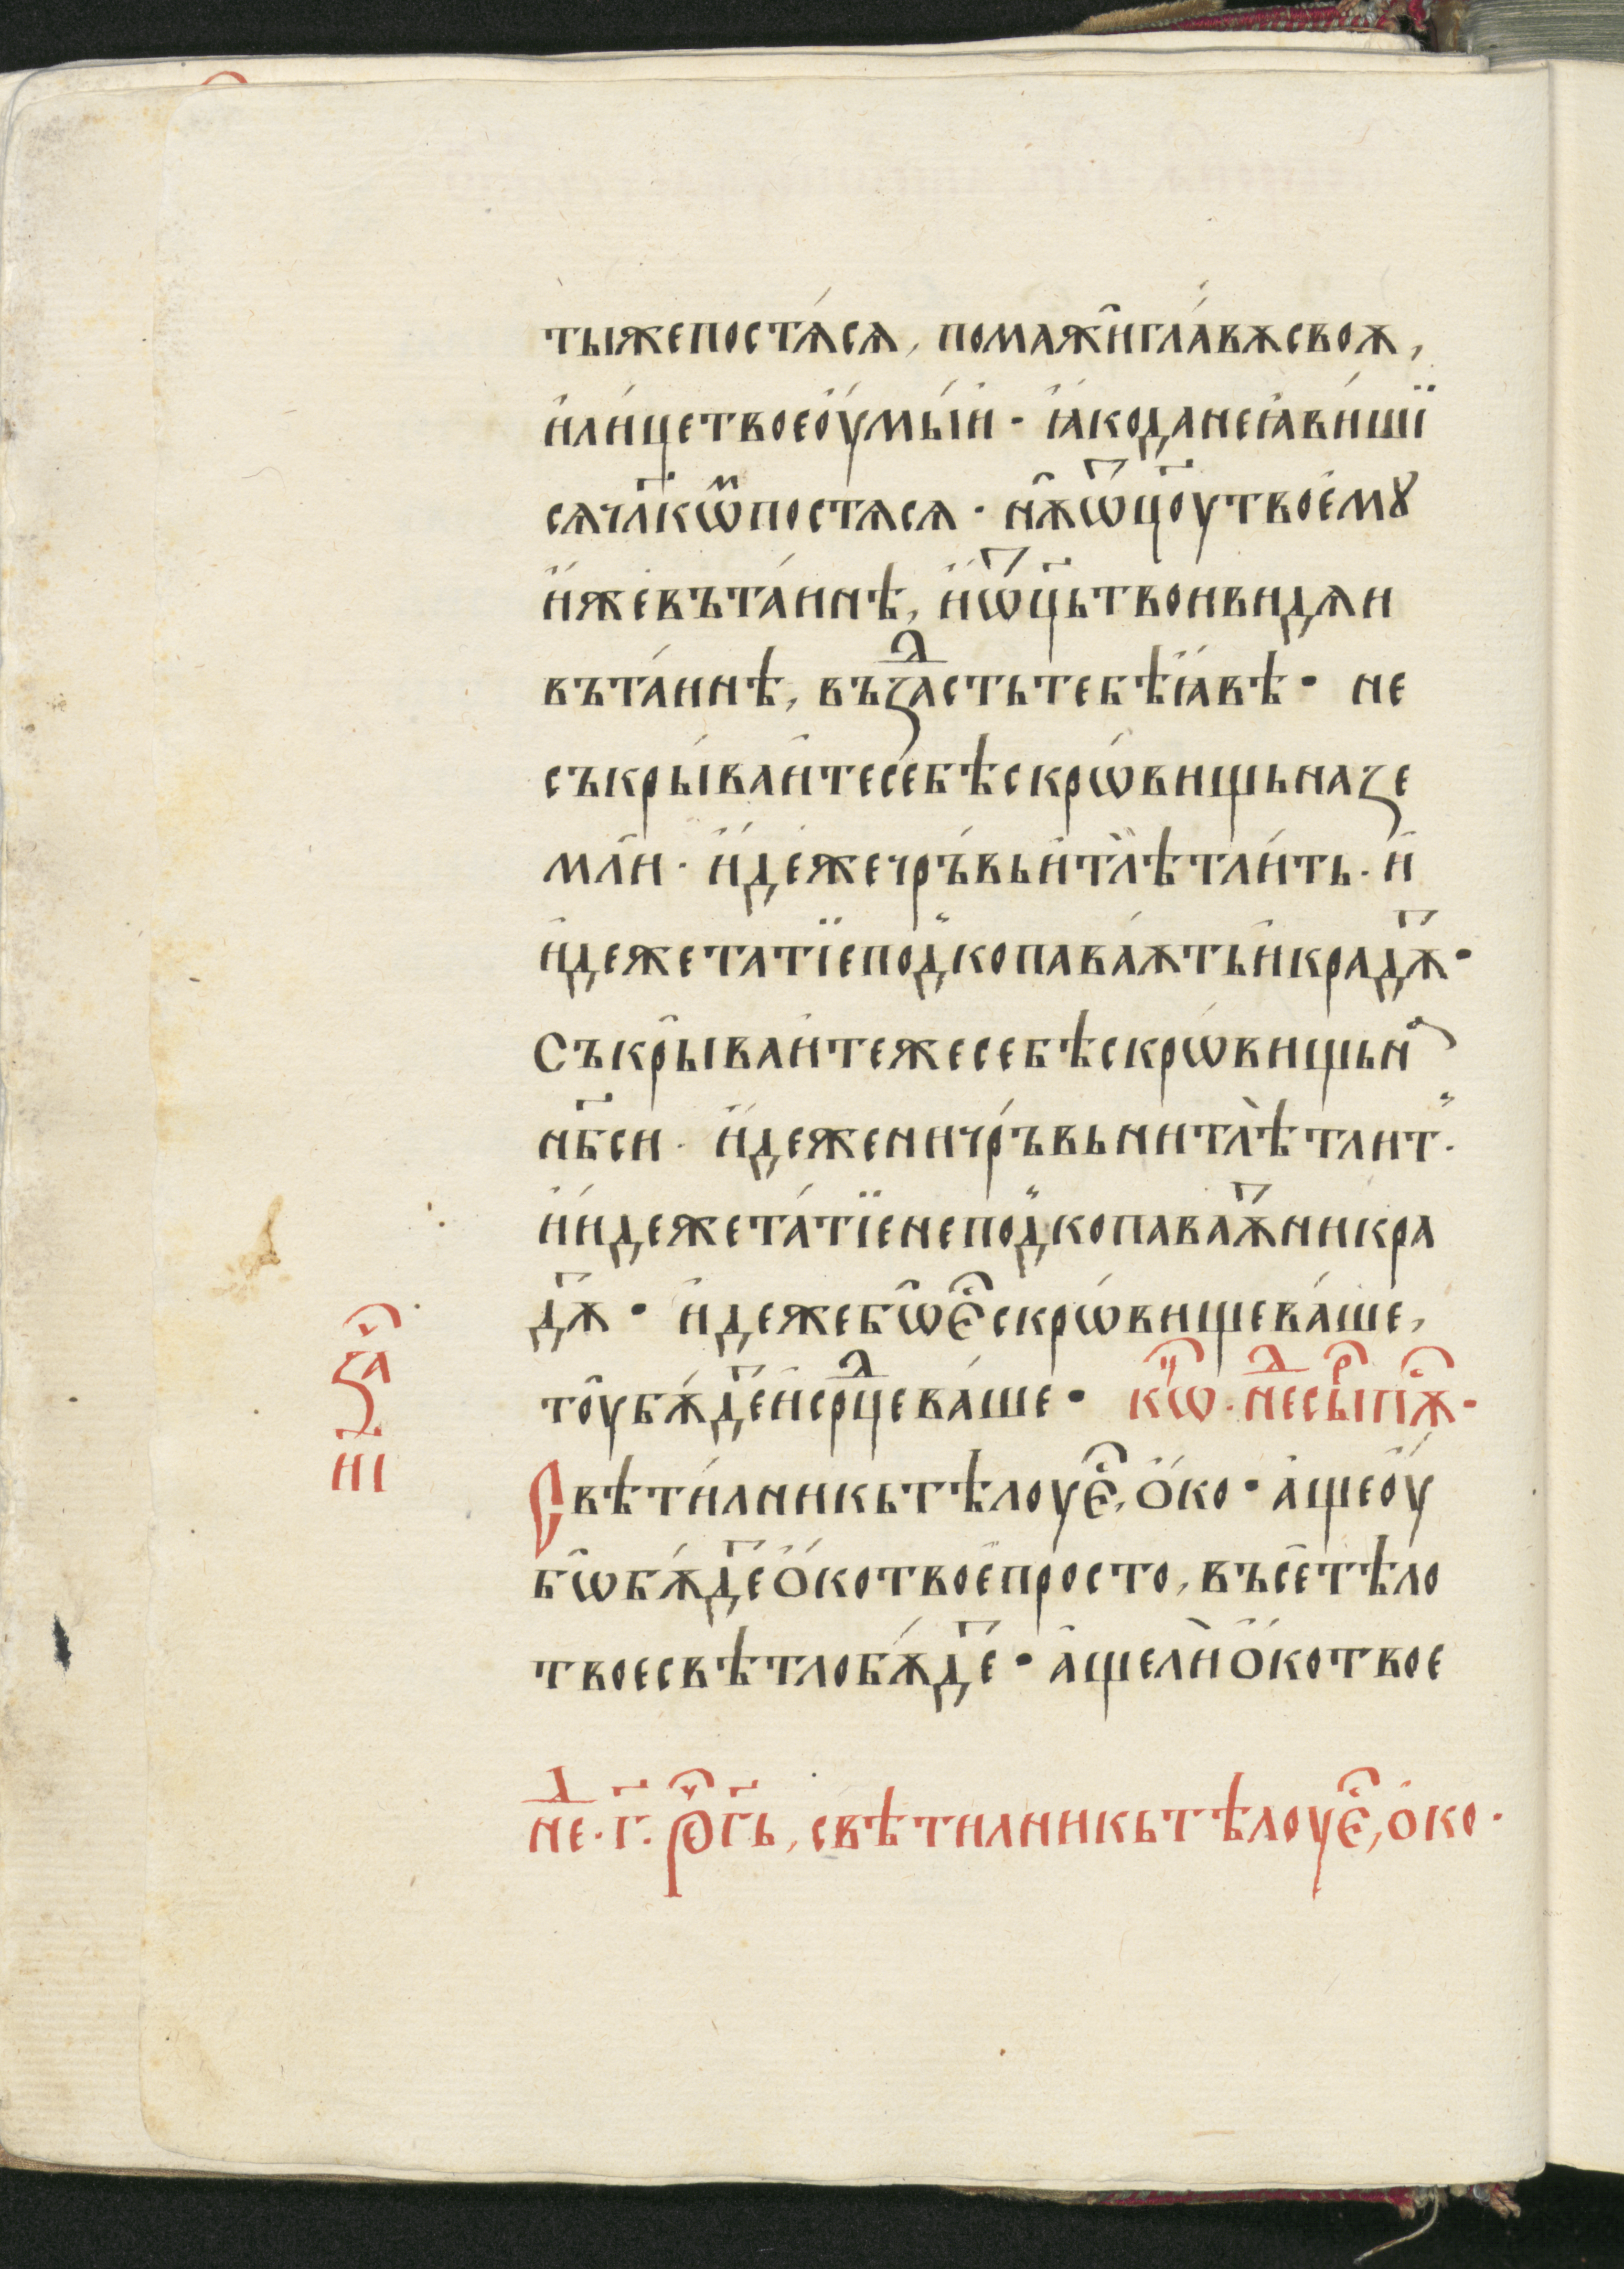 ты же постѧ́сѧ, помажи̑ гла́вѫ своѫ,
и҆ ли́це твое оу҆мы́и҆ · ꙗ҆́ко да не ꙗ҆ви́ши
сѧ чл҃кѡⷨ постѧсѧ · нѫ̑ ѡ҆ц҃оу твоемꙋ
и҆́же въ та́ннѣ, и҆ ѡ҆ц҃ь твои видѧи
въ та́ннѣ, въꙁⷣастъ тебѣ ꙗ҆́вѣ · не
съкры́ваи̑те се́бѣ скрѡ́вищь на ꙁе
мли̑ · и҆де́же чръ́вь и҆ тлѣ̀ тли́ть · и҆
и҆деже татїе подкопава́ѫть и҆ крадѫⷮ ·
Съкры̑ваи̑те же себѣ скрѡ́вищь нⷶ
нб҃си · и҆́деже ни чръ́вь ни тлѣ̀ тлит ·
и҆ и́деже та́тїе не подкопаваѫⷮ ни кра
дѫⷮ · и҆деже бѡ̑ еⷭ҇ скрѡ́вище ва́ше,
тоу̑ бѫ́деⷮ и҆ срⷣце ва́ше · кѡⷰ҇ · неⷣ сырпⷭ҇ѫ ·
ꙁаⷱ҇
Свѣти́лникь тѣлоу еⷭ҇, ѻ҆́ко · а҆́ще оу҆́
н҃і
бѡ̑ бѫ́деⷮ ѻ҆́ко твое̑ просто, въсе̑ тѣло
твое свѣтло бѫ́деⷮ · а҆ще лѝ ѻ҆́ко твое
неⷣ · г҃ · рⷱ҇е г҃ь, свѣтилникь тѣлоу еⷭ҇, ѻ҆ко ·